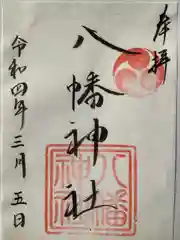 奉拝
八幡神社
八幡
神社
令和四年三月五日